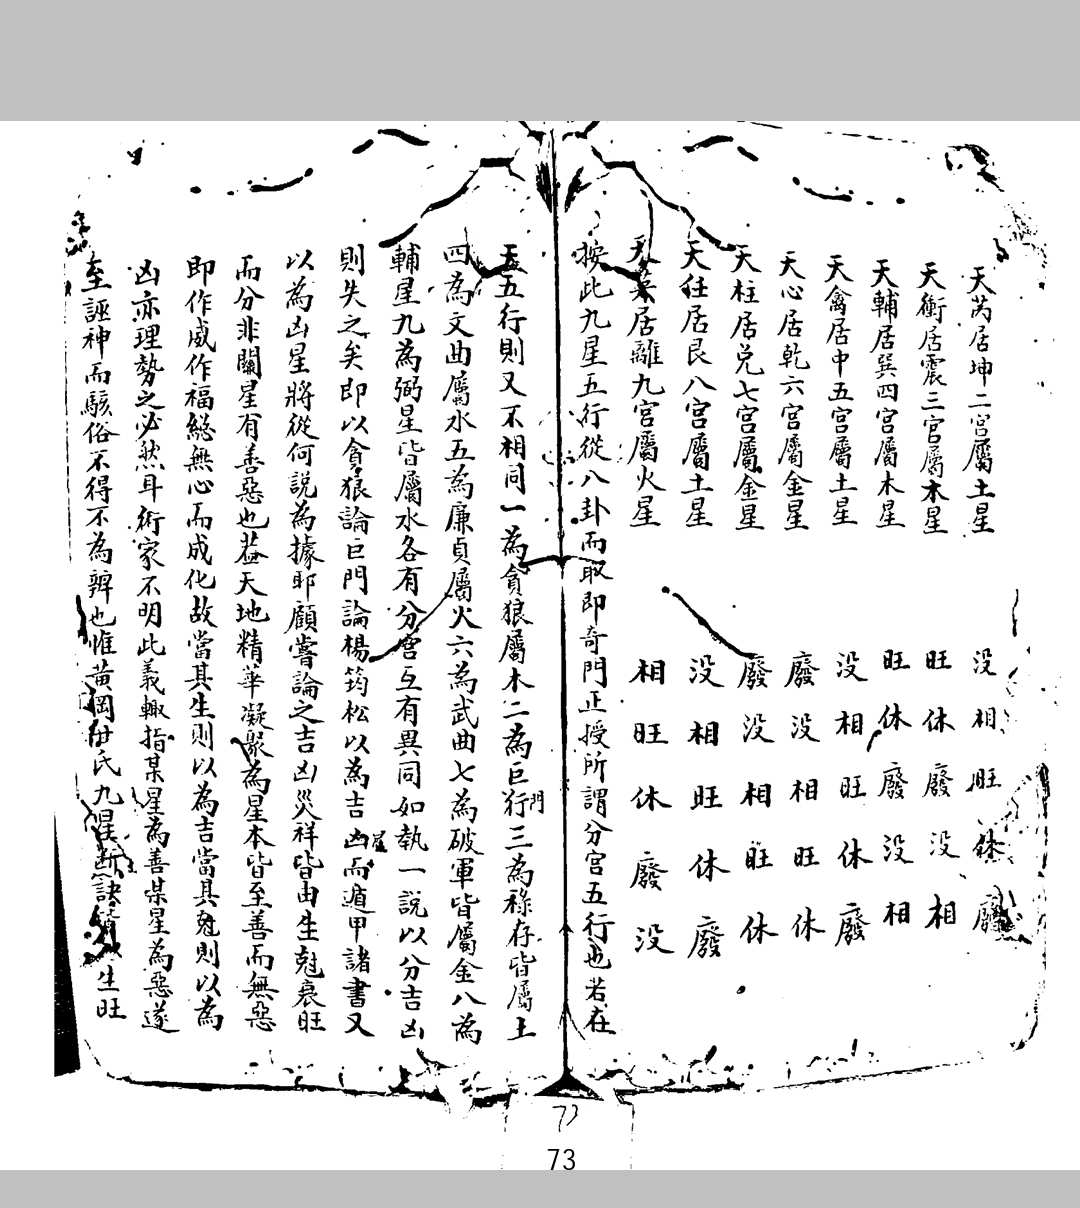 天芮居坤二宮屬土星　没相旺休廢
天衝居震三宮屬木星　旺休廢没相
天輔居巽四宮屬木星　旺休廢没相
天禽居中五宮屬土星　没相旺休廢
天心居乾六宮屬金星　廢没相旺休
天柱居兑七宮屬金星　廢没相旺休
天任居艮八宮屬土星　没相旺休廢
天英居離九宮屬火星　相旺休廢没
按此九星五行從八卦而取即奇門正授所謂分宮五行也若在
五行則又不相同一為貪狼屬木二為巨門三為祿存皆屬土
四為文曲屬水五為廉貞屬火六為武曲七為破軍皆屬金八為
輔星九為弼星皆屬水各有分宮互有異同如執一説以分吉凶
則失之矣即以貪狼論巨門論楊筠松以為吉星而遁甲諸書又
以為凶星將從何説為據耶顧嘗論之吉凶災祥皆由生尅衰旺
而分非關星有善惡也蓋天地精華凝聚為星本皆至善而無惡
即作威作福總無心而成化故當其生則以為吉當其尅則以為
凶亦理勢之必然耳術家不明此義輙指某星為善某星為惡遂
至誣神而駭俗不得不為辨也惟黄岡氏九星斷訣生旺
73
73